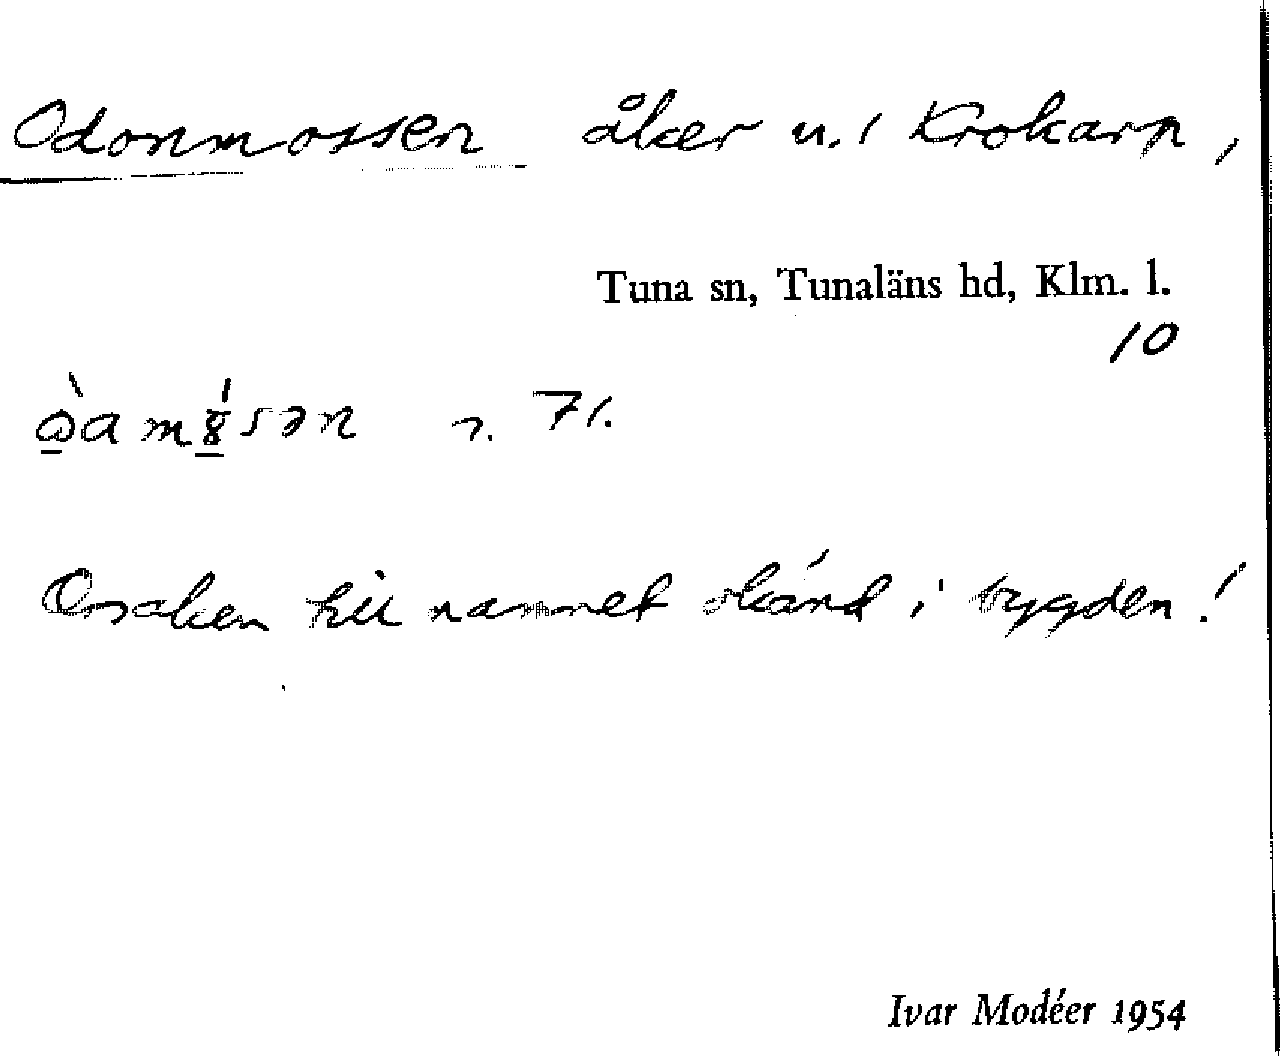 Odonmossen åker u. Krokarp,
Tuna sn, Tunaläns hd, Klm. l.
10
71.
Orsaken till namnet okänd i bygden!
Ivar Modéer 1954